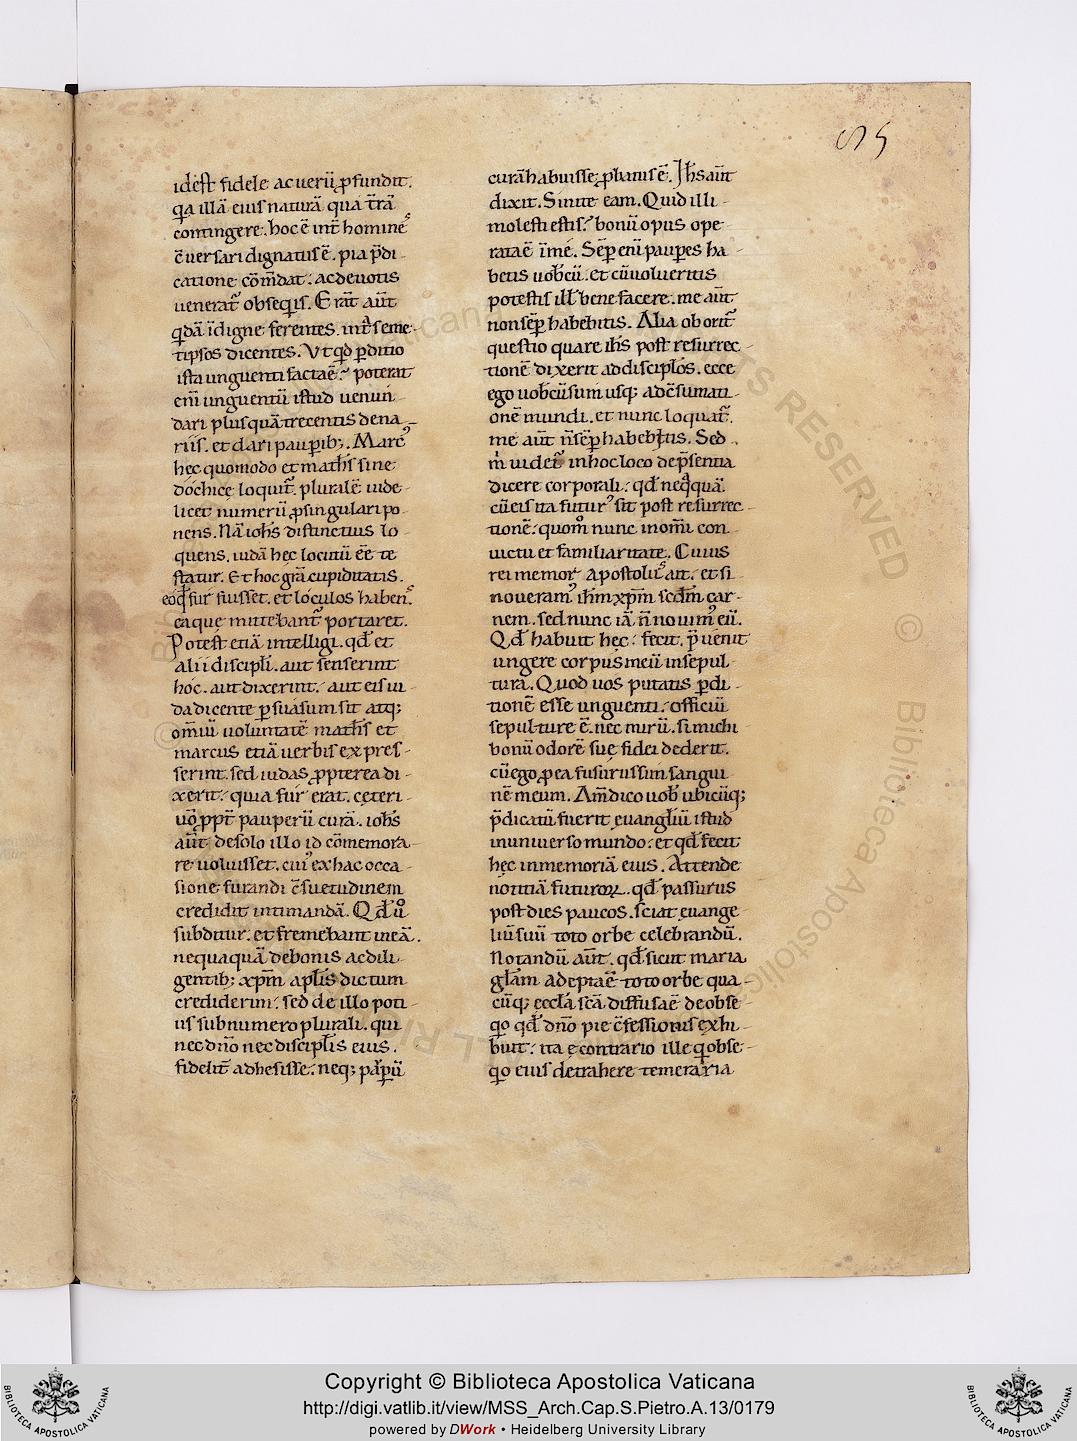 85
idest fidele ac uerū ꝓfundit.
q̄a illā eius naturā qua trā
contingere. hoc ē int̄ hominē
ꝯuersari dignatus ē. pia p̄di
catione cōm̄dat. ac deuotis
ueneratr̄ obseq̄is. Erāt aūt
q̄dā īdigne ferentes. int̄ seme
tipsos dicentes. Vt qd ꝑditio
ista unguenti facta ē? poterat
eni unguentū istud uenun
dari plusquā trecentis dena
riis. et dari pauꝑib;. Marcꝰ
hec quomodo et math̄s sine
dochice loquit̄. pluralē uide
licet numerū ꝓ singulari po
nens. Nā ioh̄s distinctius lo
quens. iudā hec locutū ēe te
statur. Et hoc gr̄a cupiditatis.
eoqđ fur fuisset. et loculos habenˢ
ea que mittebantr̄ portaret.
Potest etiā intelligi. qđ et
alii discipli. aut senserint
hoc. aut dixerint. aut eis iu
da dicente ꝑsuasum sit atq;
omīu uoluntatē math̄s et
marcus etiā uerbis expres
serint. sed iudas ꝓpterea di
xerit. quia fur erat. ceteri
uo ꝓpt̄ pauperū curā. ioh̄s
aūt de solo illo id cōmemora
re uoluisset. cuiꝰ ex hac occa
sione furandi ꝯsuetudinem
credidit intimandā. Qđ uo
subditur. et fremebant in eā.
nequaquā de bonis ac dili
gentib; xp̄m apl̄is dictum
crediderim. sed de illo poti
us sub numero plurali. qui
nec dn̄o nec discipl̄is eius.
fidelit̄ adhesisse. neq; pauꝑū
curā habuisse ꝓbatus ē. Ih̄s aūt
dixit. Sinite eam. Quid illi
molesti estis? bonū opus ope
rata ē ī me. Sēꝑ eni pauꝑes ha
betis uob̄cū. et cū uolueritis
potestis ill̄ bene facere. me aūt
non sēꝑ habebitis. Alia oborit̄
questio quare ih̄s post resurrec
tionē dixerit ad discipl̄os. ecce
ego uob̄cū sum usq; ad ꝯsumati
onē mundi. et nunc loquat̄.
me aūt n̄ sēꝑ habebitis. Sed
m̄ uidet̄ in hoc loco de p̄sentia
dicere corporali. qđ neq̄quā
cū eis ita futurꝰ sit post resurrec
tionē. quom̊ nunc in om̄i con
uictu et familiaritate. Cuius
rei memor apostolus ait. et si
noueramꝰ ih̄m xp̄m scdm̄ car
nem. sed nunc iā n̄ nouimꝰ eū.
Qđ habuit hec. fecit. p̄uenit
ungere corpus meū in sepul
turā. Quod uos putatis ꝑdi
tionē esse unguenti. officiū
sepulture ē. nec mirū. si michi
bonū odorē sue fidei dederit.
cū ego ꝓ ea fusurus sum sangui
nē meum. Am̄ dico uob̄ ubicūq;
p̄dicatū fuerit euangl̄iū istud
in uniuerso mundo. et qđ fecit
hec in memoriā eius. Attende
notitiā futuroꝝ. qđ passurus
post dies paucos. sciat euange
liū suū toto orbe celebrandū.
Notandū aūt. qđ sicut maria
gl̄am adepta ē toto orbe qua
cūq; eccl̄a sc̄a diffusa ē de obse
q̊o qđ dn̄o pie ꝯfessionis exhi
buit. ita e contrario ille q̄ obse
q̊o eius detrahere temeraria
Copyright © Biblioteca Apostolica Vaticana
http://digi.vatlib.it/view/MSS_Arch.Cap.S.Pietro.A.13/0179
powered by DWork • Heidelberg University Library
BIBLIOTECA APOSTOLICA VATICANA
BIBLIOTECA APOSTOLICA VATICANA